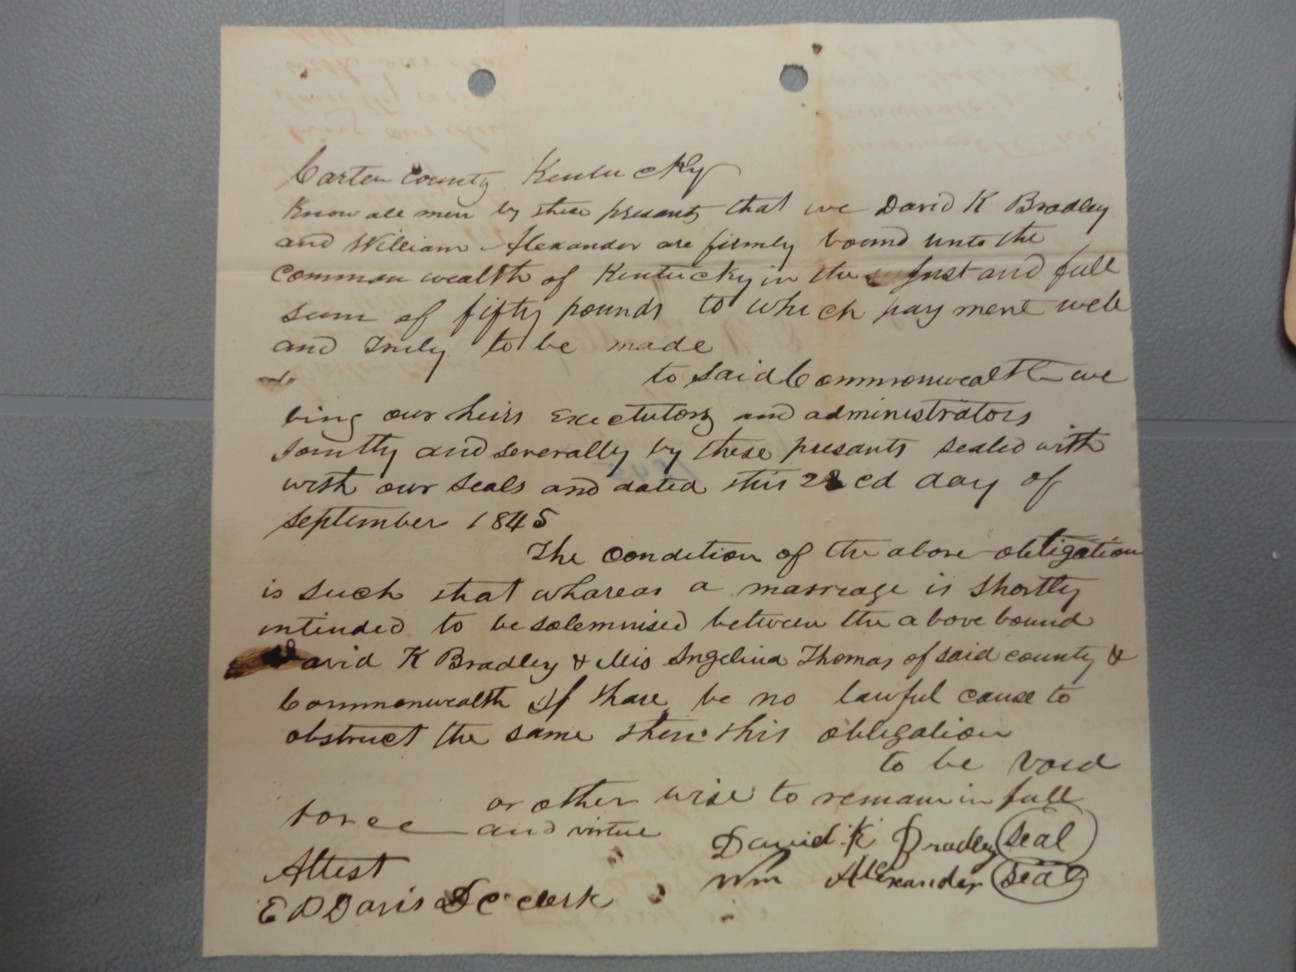 Carter County Kentucky
Know all men by these presents that we David K Bradley
and William Alexander are firmly bound unto the
Common wealth of Kentucky in the Just and full
sum of fifty pounds to which pay ment well
and Truly to be made
to said Commonwealth we
bing our heirs Exectutors and administrators
Jointly and severally by these presants sealed with
with our seals and dated this 22 cd day of
September 1845
The condition of the above obligation
is such that whareas a marriage is shortly
intended to be solemnised between the above bound
David K Bradley & Mis Angelina Thomas of said county &
Commonwealth If thare be no lawful cause to
obstruct the same then this obligation
to be void
or other wise to remain in full
force and virtue
David K Bradley Seal
Attest
Wm Alexander Seal
E D Davis D C clerk